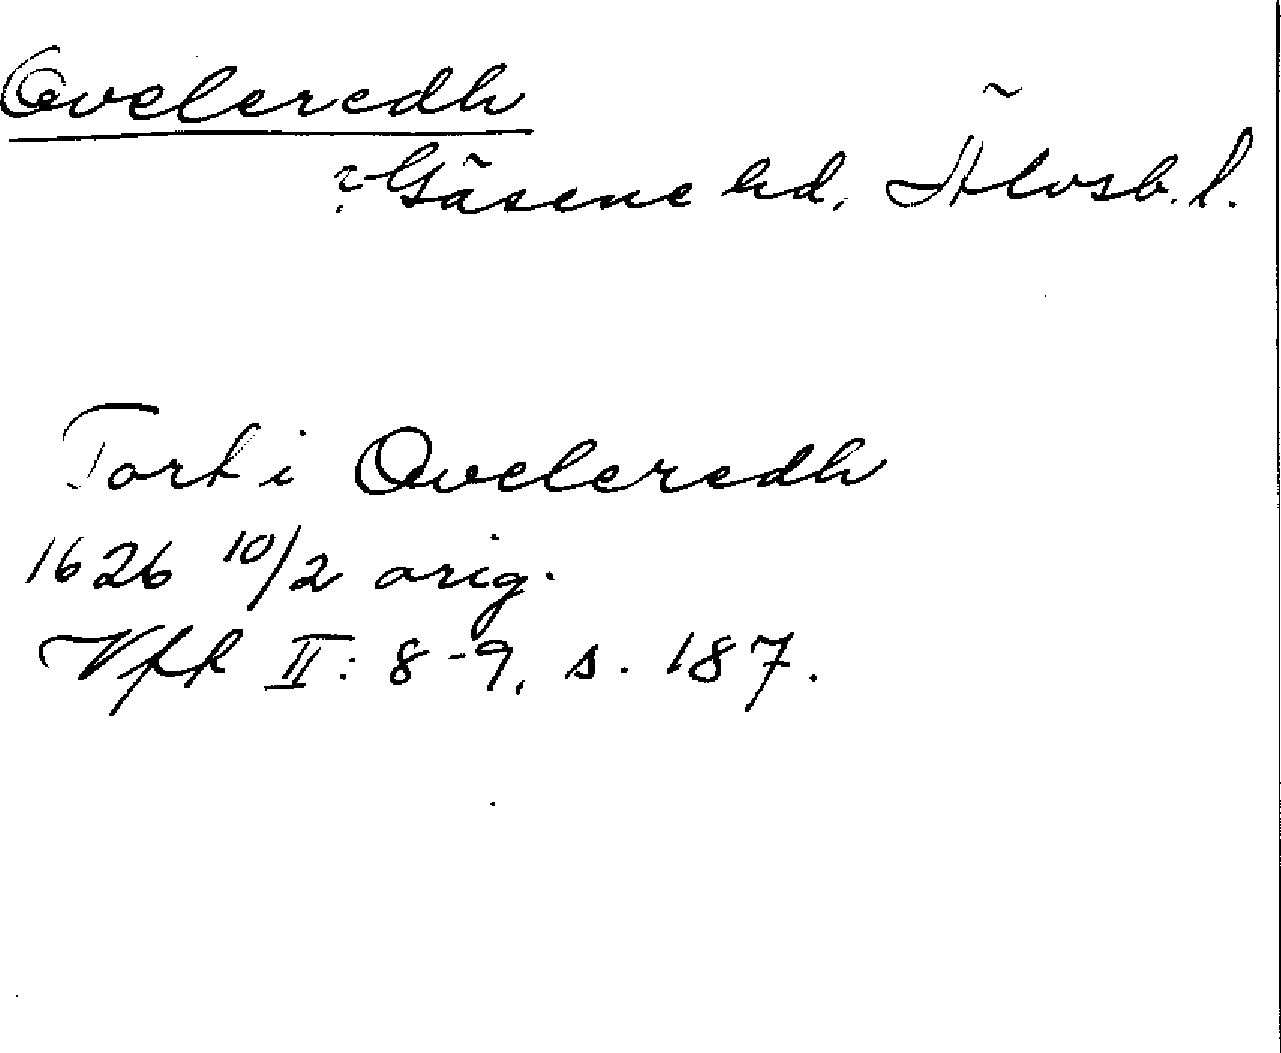 Oveleredh
? Gäsene hd, Älvsb. l.
Torf i Oveleredh
1626 10/2 orig.
Vfk II: 8-9, s. 187.